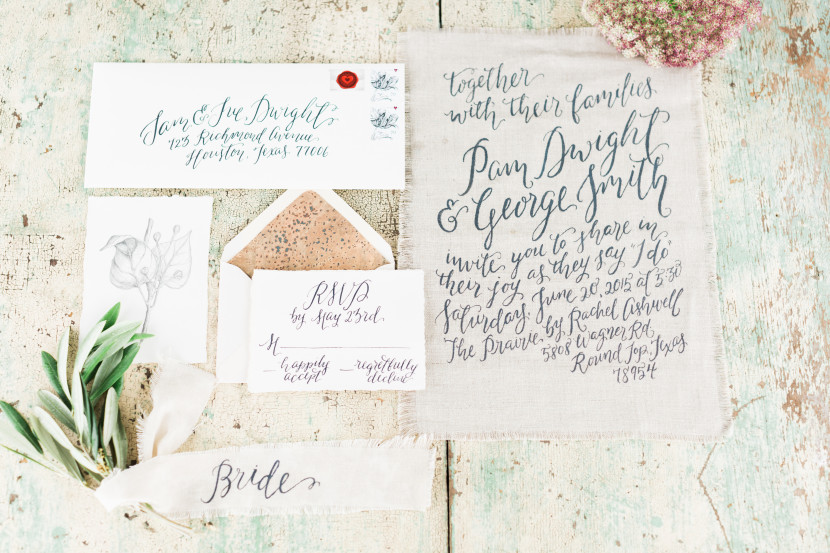 Sam & Sue Dwight
1425 Richmond Avenue
Houston, Texas 77006
together
with their families
Pam Dwight
& George Smith
invite you to share in
their joy as they say "I do"
Saturday, June 20, 2015 at 5:30
The Prairie by Rachel Ashwell
5808 Wagner Rd.
Round Top, Texas
78954
RSVP
by May 23rd.
M
happily accept
regretfully decline
Bride